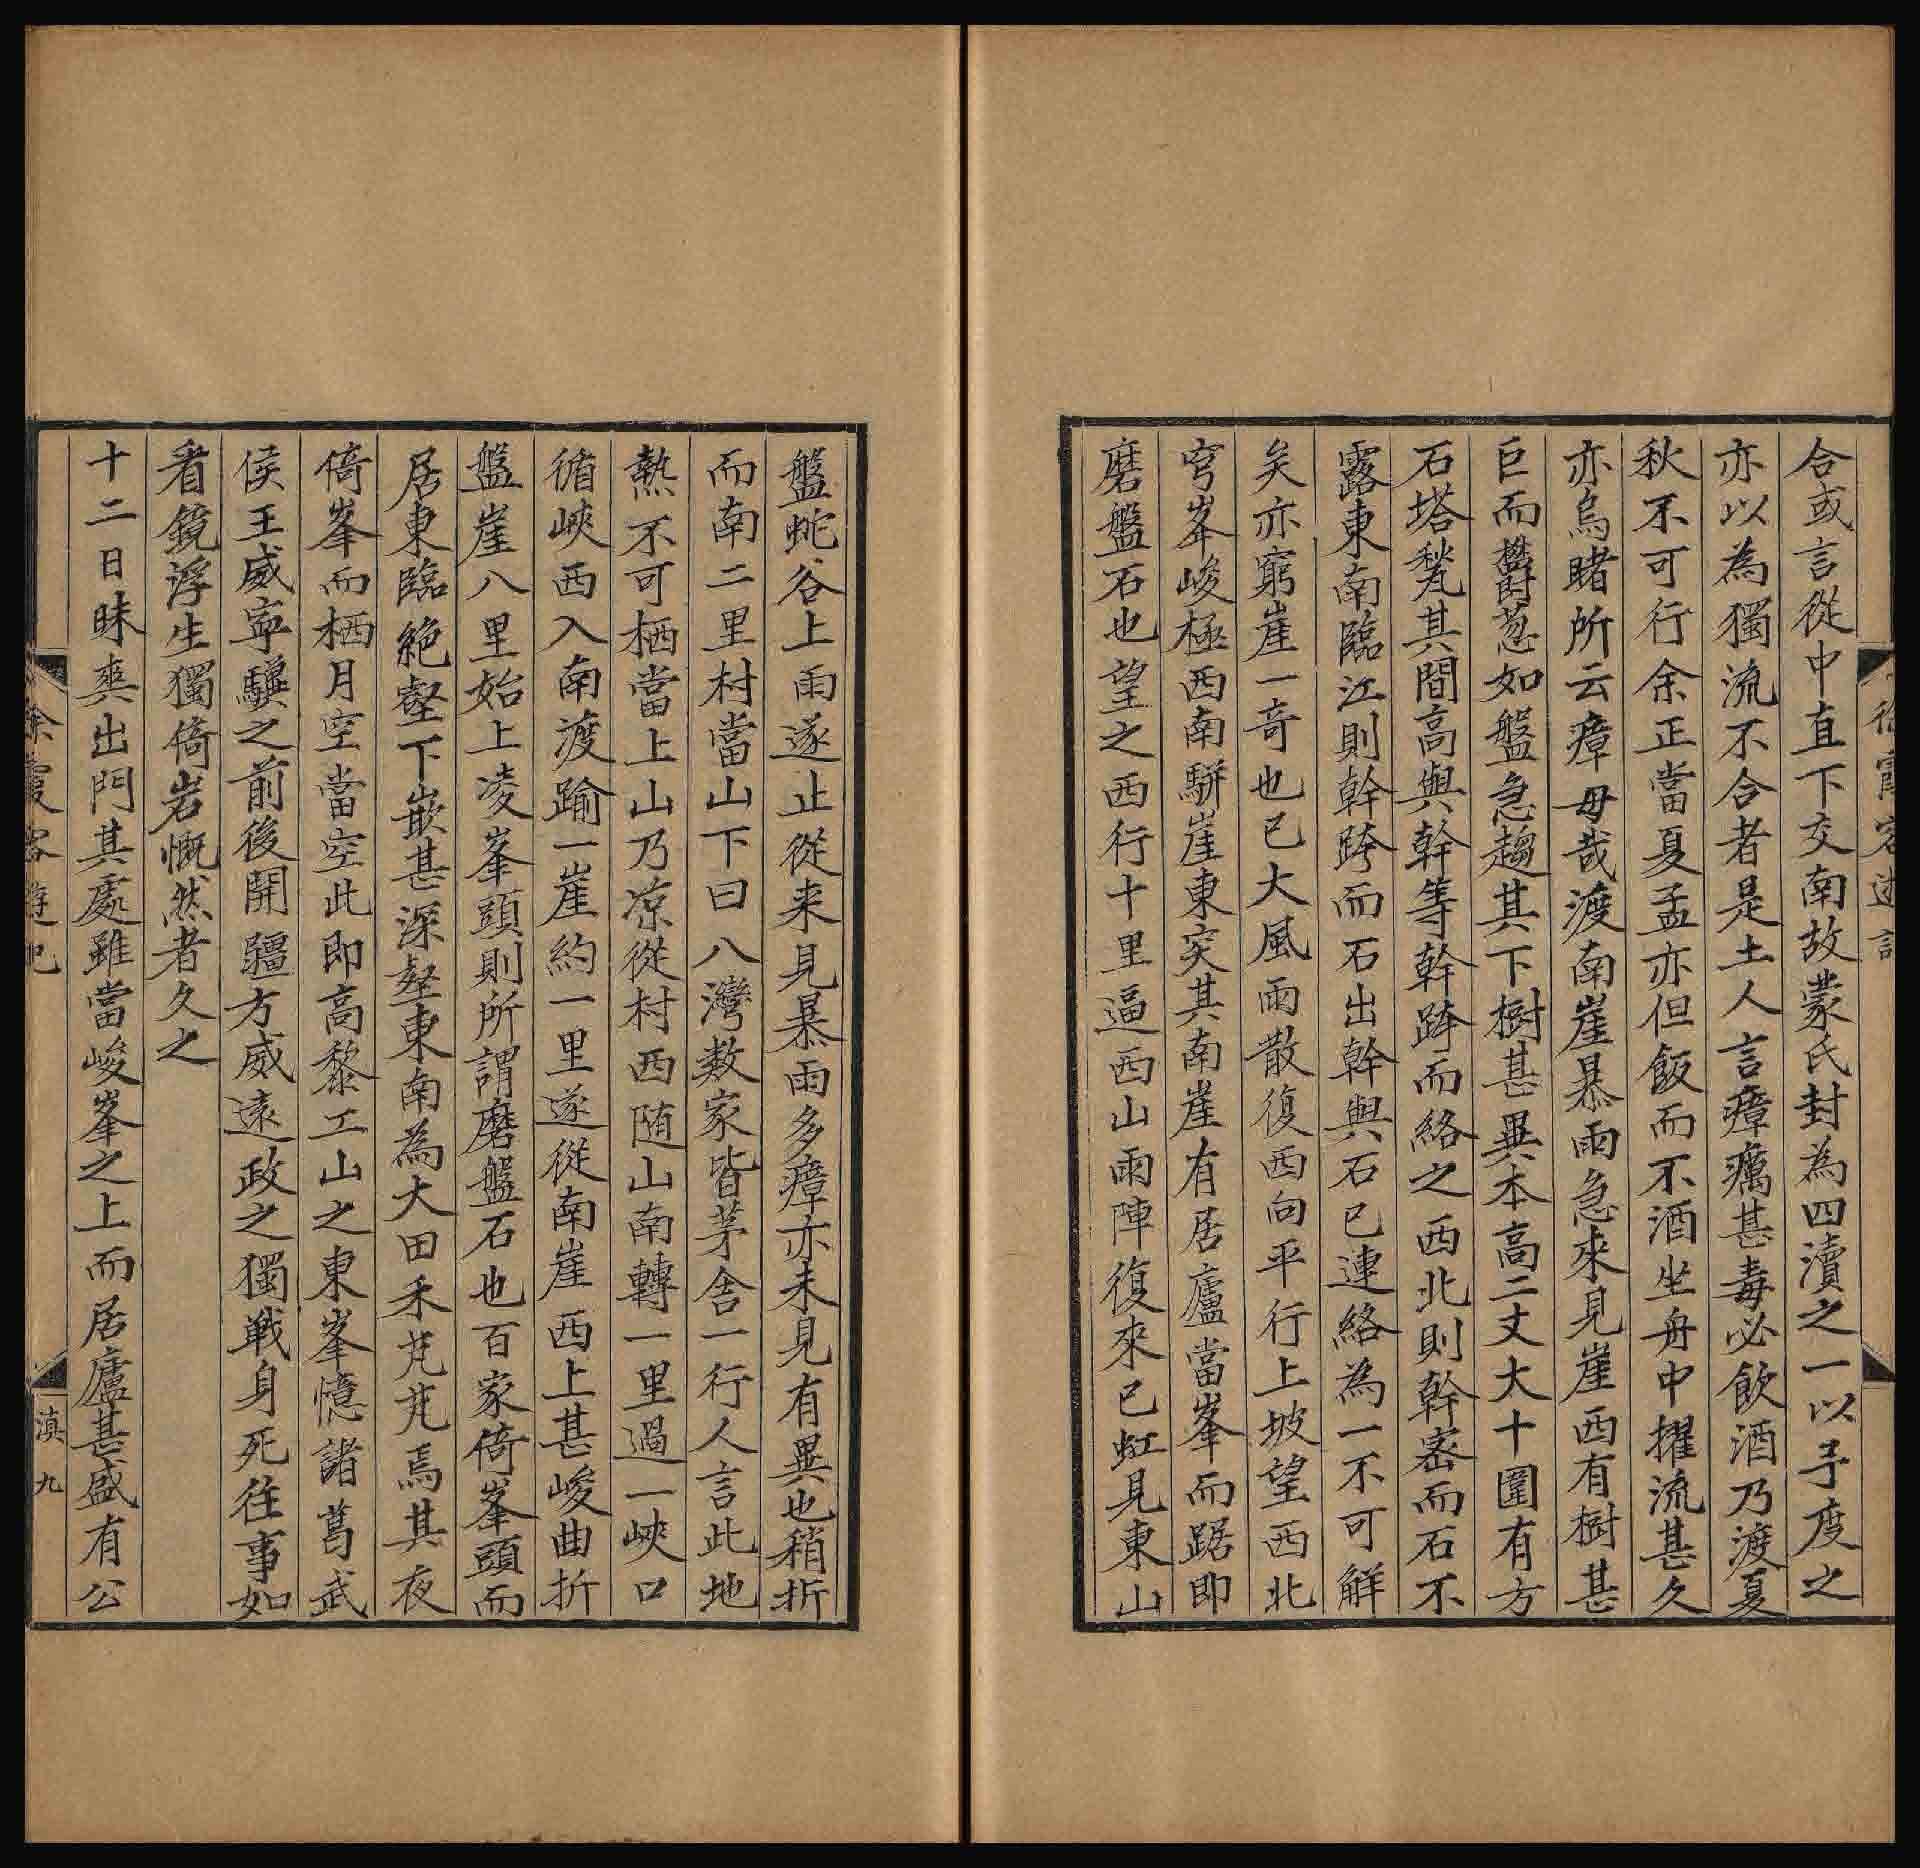 徐霞客遊記
合或言從中直下交南故蒙氏封為四瀆之一以予度之
亦以為獨流不合者是土人言瘴癘甚毒必飲酒乃渡夏
秋不可行余正當夏孟亦但飯而不酒坐舟中擢流甚久
亦烏睹所云瘴母哉渡南崖暴雨急來見崖西有樹甚
巨而欝葱如盤急趨其下樹甚異本高二丈大十圍有方
石塔甃其間高與幹等幹跨而絡之西北則幹密而石不
露東南臨江則幹跨而石出幹與石已連絡為一不可解
矣亦窮崖一奇也已大風雨散復西向平行上坡望西北
穹峯峻極西南駢崖東突其南崖有居廬當峯而踞即
磨盤石也望之西行十里逼西山雨陣復來已虹見東山
盤蛇谷上雨遂止從来見暴雨多瘴亦未見有異也稍折
而南二里村當山下曰八灣數家皆茅舍一行人言此地
熱不可栖當上山乃凉從村西随山南轉一里過一峽口
循峽西入南渡踰一崖約一里遂從南崖西上甚峻曲折
盤崖八里始上凌峯頭則所謂磨盤石也百家倚峯頭而
居東臨絶壑下嵌甚深壑東南為大田禾芃芃焉其夜
倚峯而栖月空當空此即高黎工山之東峯憶諸葛武
侯王威寧驥之前後開疆方威遠政之獨戰身死往事如
看鏡浮生獨倚岩慨然者久之
十二日昧爽出門其處雖當峻峯之上而居廬甚盛有公
徐霞客遊記
滇九